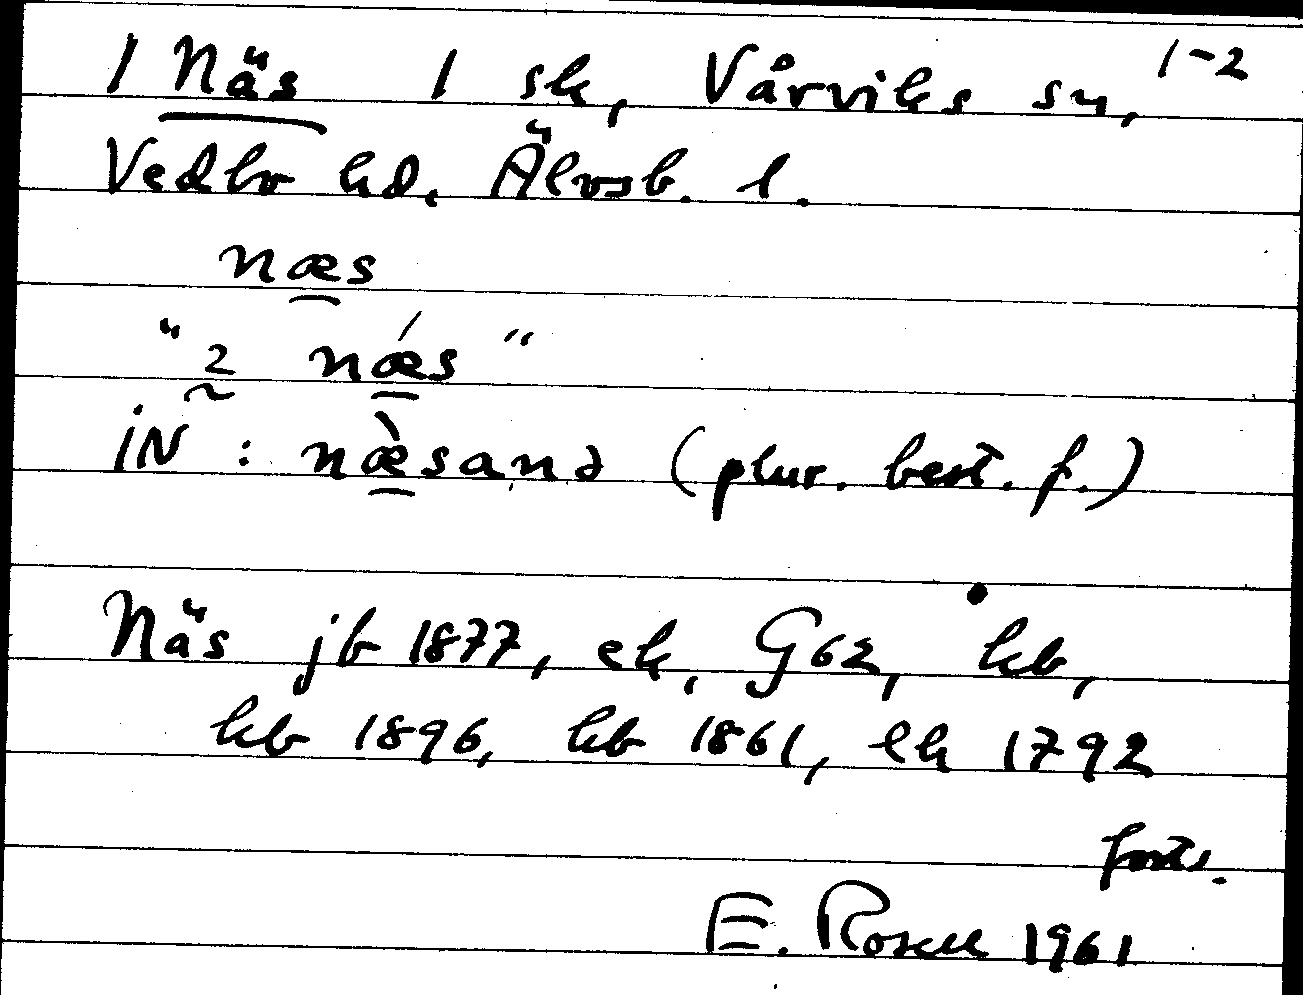 1 Näs 1 sk, Vårviks sn, 1-2
Vedbo hd. Älvsb. l.
næs
"2 nǽs"
iN : næ̀sanə (plur. best. f.)
Näs jb 1877, ek, G62, kb,
kb 1896, kb 1861, ek 1792
forts.
E. Rosell 1961